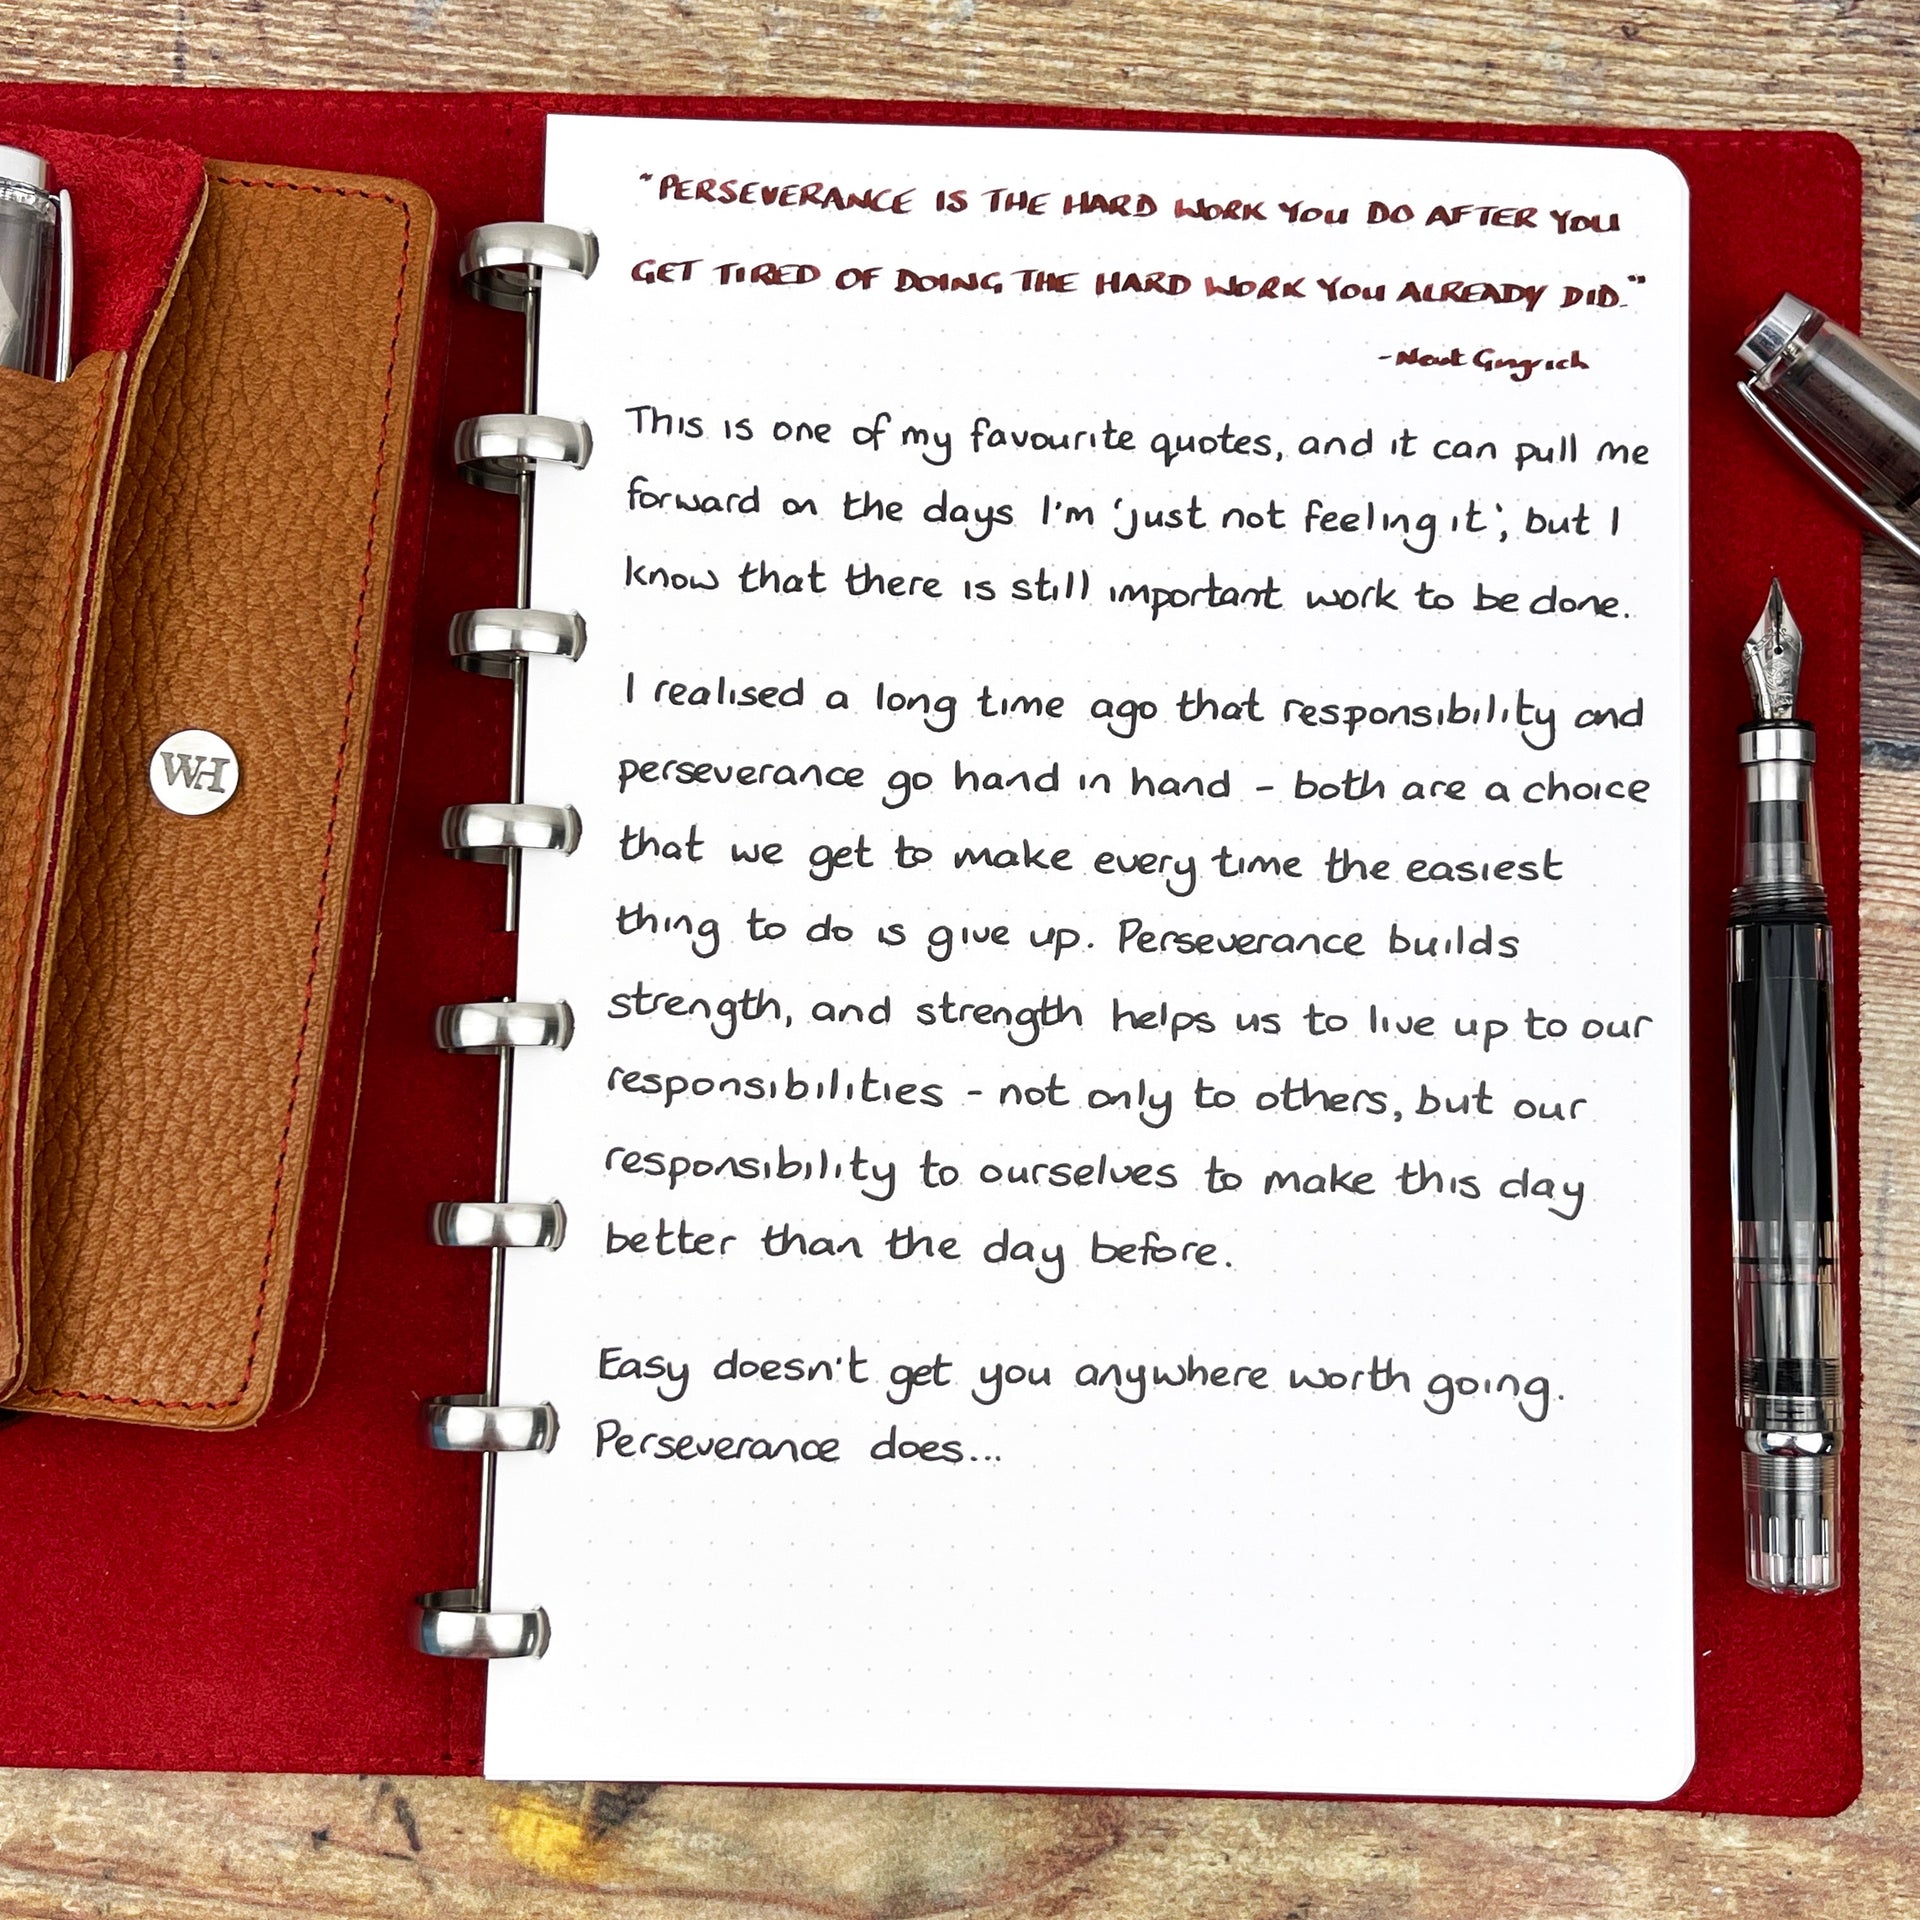 WH
"PERSEVERANCE IS THE HARD WORK YOU DO AFTER YOU
GET TIRED OF DOING THE HARD WORK YOU ALREADY DID."
- Newt Gingrich
This is one of my favourite quotes, and it can pull me
forward on the days I'm 'just not feeling it', but I
know that there is still important work to be done.
I realised a long time ago that responsibility and
perseverance go hand in hand - both are a choice
that we get to make every time the easiest
thing to do is give up. Perseverance builds
strength, and strength helps us to live up to our
responsibilities - not only to others, but our
responsibility to ourselves to make this day
better than the day before.
Easy doesn't get you anywhere worth going.
Perseverance does...